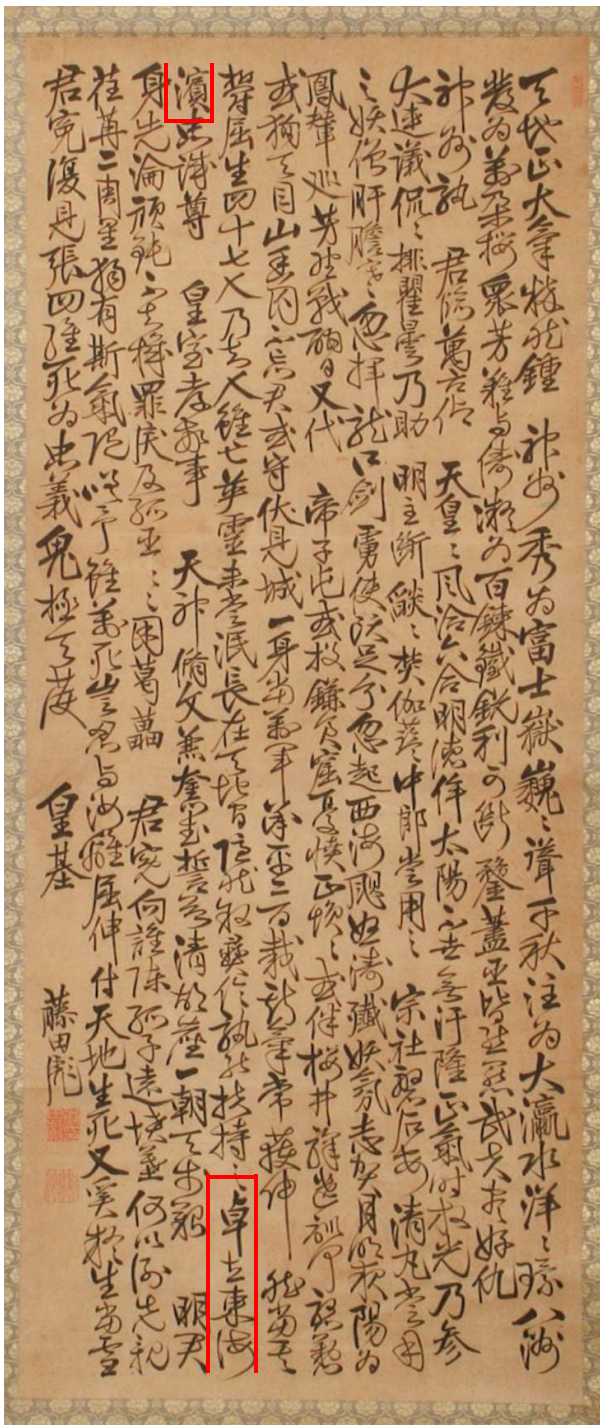 天地正大氣粹然鍾 神州秀為富士嶽巍〻聳千秋注為大瀛水洋〻環八洲
發為萬朶桜衆芳難与儔凝為百錬鐵鋭利可断鍪藎臣皆熊羆武夫盡好仇
神州孰 君臨萬古仰 天皇〻風洽六合明徳侔太陽不世無汙隆正氣時放光乃参
大連議侃〻排瞿曇乃助 明主断燄〻焚伽藍中郎嘗用之 宗社磐石安清丸嘗用
之妖僧肝膽寒忽揮龍口剣虜使頭足分忽起西海颶怒涛殲妖氛志賀月明夜陽為
鳳輦巡芳野戦酣日又代 帝子屯或投鎌倉窟憂憤正愪〻或伴桜井驛遺訓何慇懃
或殉天目山幽囚不忘君或守伏見城一身當萬軍承平二百歳斯氣常獲伸然當其
鬱屈生四十七人乃知人雖亡英靈未嘗泯長在天地間隠然叙彝倫孰能扶持之卓立東海
濱忠誠尊 皇室孝敬事 天神脩文兼奮武誓欲清胡塵一朝天歩艱 明君
身先淪頑鈍不知機罪戻及孤臣〻〻困葛藟 君冤向誰陳孤子遠墳墓何以謝先親
荏苒二周星獨有斯氣随嗟予雖萬死豈忍与汝離屈伸付天地生死又奚疑生當雪
君冤復見張四維死為忠義鬼極天護 皇基
藤田彪